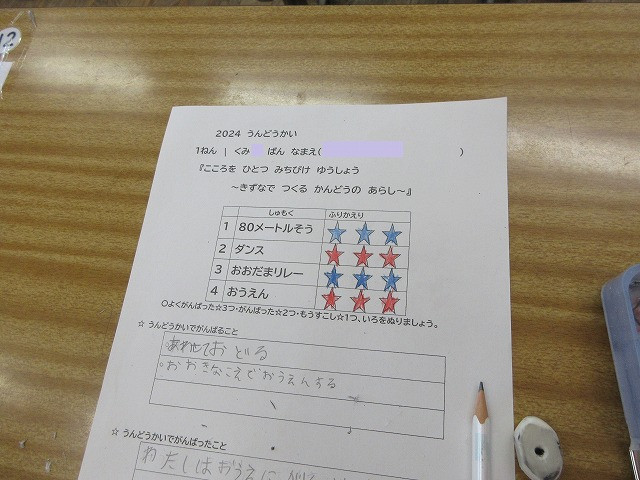 12
2024 うんどうかい
1ねん 1 くみ ばん なまえ( )
『こころを ひとつ みちびけ ゆうしょう
～きずなで つくる かんどうの あらし～』
しゅもく ふりかえり
1 80メートルそう
2 ダンス
3 おおだまリレー
4 おうえん
○よくがんばった☆3つ・がんばった☆2つ・もうすこし☆1つ、いろをぬりましょう。
☆ うんどうかいでがんばること
あわせておどる
おおきなこえでおうえんする
☆ うんどうかいでがんばったこと
わたしはおうえん